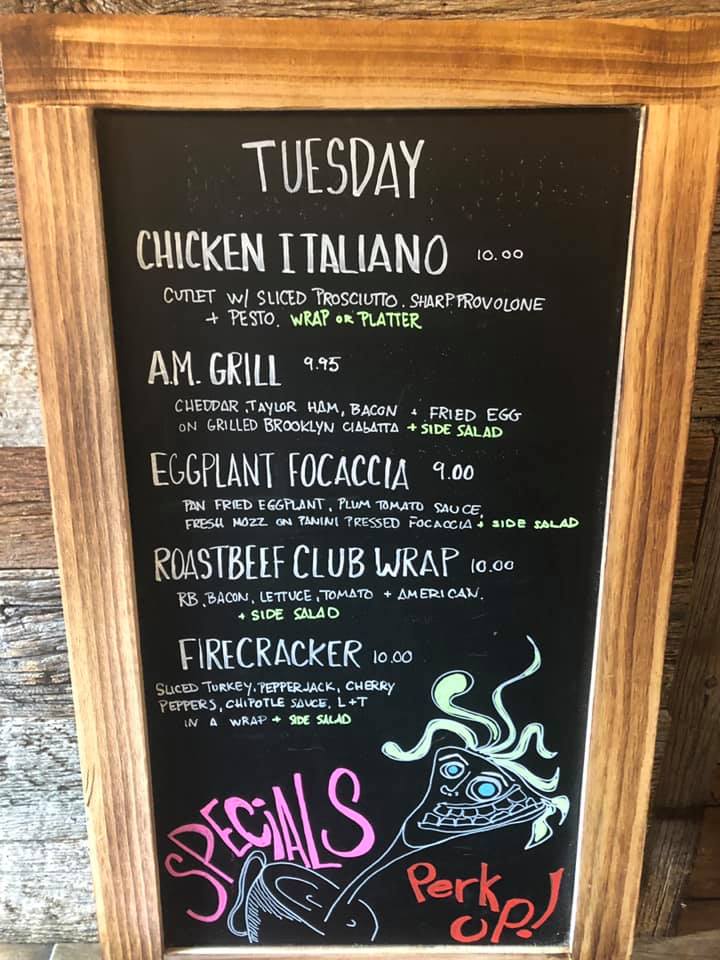 TUESDAY
CHICKEN ITALIANO 10.00
CUTLET W/ SLICED PROSCIUTTO. SHARP PROVOLONE
+ PESTO. WRAP OR PLATTER
A.M. GRILL 9.95
CHEDDAR, TAYLOR HAM, BACON + FRIED EGG
ON GRILLED BROOKLYN CIABATTA + SIDE SALAD
EGGPLANT FOCACCIA 9.00
PAN FRIED EGGPLANT, PLUM TOMATO SAUCE,
FRESH MOZZ ON PANINI PRESSED FOCACCIA + SIDE SALAD
ROASTBEEF CLUB WRAP 10.00
RB, BACON, LETTUCE, TOMATO + AMERICAN.
+ SIDE SALAD
FIRECRACKER 10.00
SLICED TURKEY, PEPPERJACK, CHERRY
PEPPERS, CHIPOTLE SAUCE, L+T
IN A WRAP + SIDE SALAD
SPECiALS
Perk
UP!